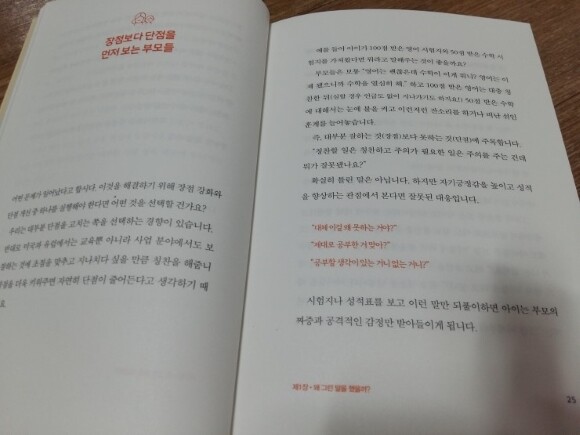 장점보다 단점을
먼저 보는 부모들
어떤 문제가 일어났다고 합시다. 이것을 해결하기 위해 장점 강화와
단점 개선 중 하나를 실행해야 한다면 어떤 것을 선택할 건가요?
우리는 대부분 단점을 고치는 쪽을 선택하는 경향이 있습니다.
반대로 미국과 유럽에서는 교육뿐 아니라 사업 분야에서도
하는 것에 초점을 맞추고 지나치다 싶을 만큼 칭찬을 해줍니
점을 더욱 키워주면 자연히 단점이 줄어든다고 생각하기 때
요.
예를 들어 아이가 100점 받은 영어 시험지와 50점 받은 수학 시
험지를 가져왔다면 뭐라고 말해주는 것이 좋을까요?
부모들은 보통 “영어는 괜찮은데 수학이 이게 뭐니? 영어는 이
왜 했으니까 수학을 열심히 해.” 하고 100점 받은 영어는 대충 칭
찬한 뒤(심할 경우 언급도 없이 지나가기도 하지요) 50점 받은 수학
에 대해서는 눈에 불을 켜고 이런저런 잔소리를 하거나 비난 섞인
훈계를 늘어놓습니다.
즉, 대부분 잘하는 것(장점)보다 못하는 것(단점)에 주목합니다.
“칭찬할 일은 칭찬하고 주의가 필요한 일은 주의를 주는 건데
뭐가 잘못됐나요?”
확실히 틀린 말은 아닙니다. 하지만 자기긍정감을 높이고 성적
을 향상하는 관점에서 본다면 잘못된 대응입니다.
“대체 이걸 왜 못하는 거야?”
“제대로 공부한 거 맞아?”
“공부할 생각이 있는 거니 없는 거니?”
시험지나 성적표를 보고 이런 말만 되풀이하면 아이는 부모의
짜증과 공격적인 감정만 받아들이게 됩니다.
제1장 • 왜 그런 말을 했을까?
25